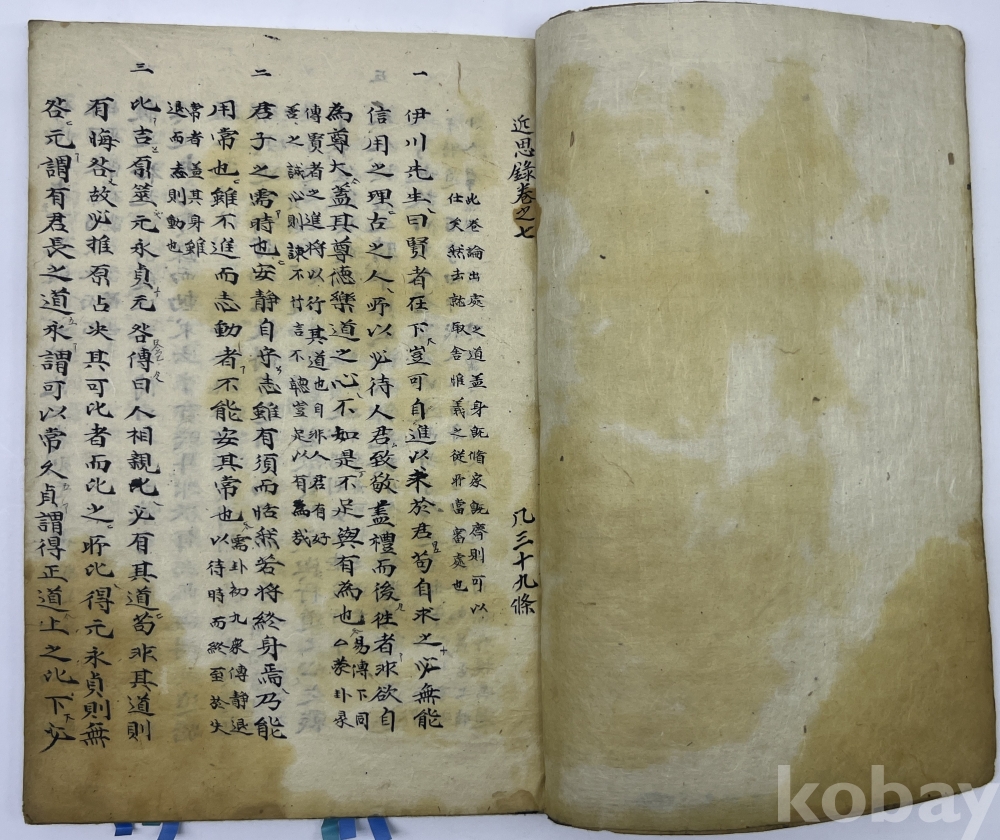 近思錄卷之七 凡三十九條
此卷論出處之道盖身旣脩家旣齊則可以
仕矣然去就取舍惟義之從所當審處也
一 伊川先生曰賢者在下豈可自進以求於君苟自求之必無能
信用之理古之人所以必待人君致敬盡禮而後往者非欲自
為尊大盖其尊德樂道之心不如是不足與有為也 易傳下同
厶蒙卦彖
傳賢者之進將以行其道也自非人君有好
善之誠心則諫不行言不聽豈足以有為哉
二 君子之需時也安靜自守志雖有須而恬然若將終身焉乃能
用常也雖不進而志動者不能安其常也 需卦初九象傳靜退
以待時而終至於失
常者盖其身雖
退而志則動也
三 比吉原筮元永貞无咎傳曰人相親比必有其道苟非其道則
有悔咎故必推原占决其可比者而比之所比得元永貞則無
咎元謂有君長之道永謂可以常久貞謂得正道上之比下必
kobay